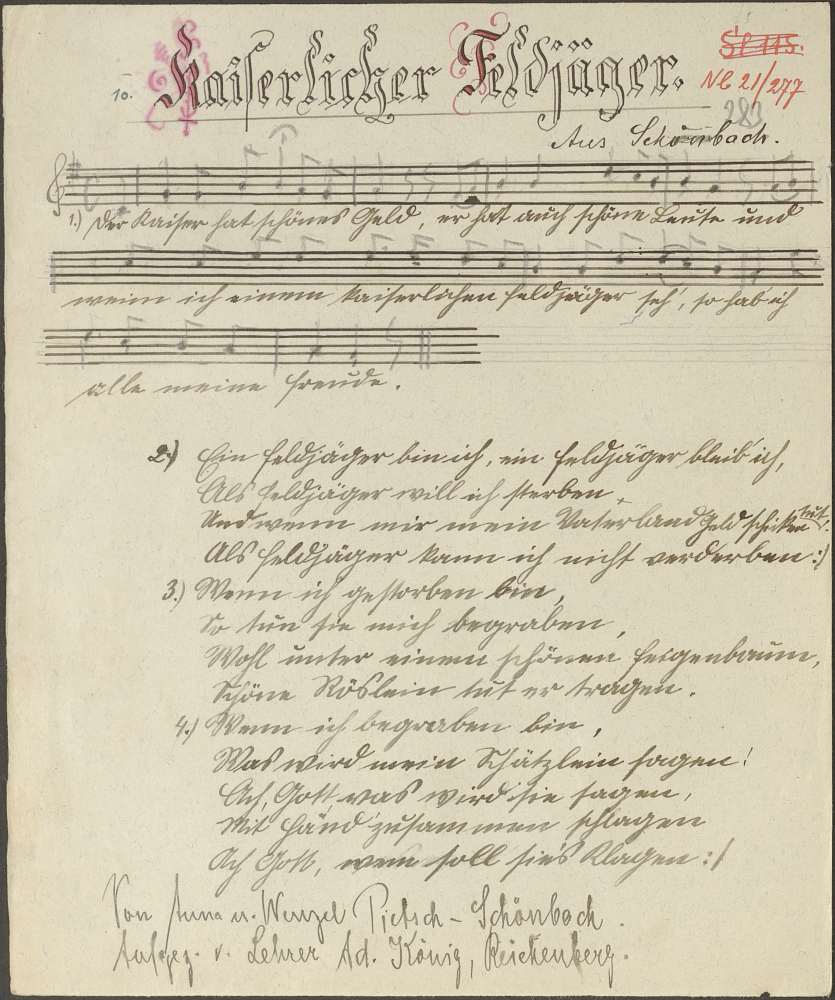 Sl 115.
10. Kaiserlicher Feldjäger.
Nb 21/277
283
Aus Schönbach.
1.) Der Kaiser hat schönes Geld, er hat auch schöne Leute und
wenn ich einem kaiserlichen Feldjäger seh', so hab' ich
alle meine Freude.
2.) Ein Feldjäger bin ich, ein Feldjäger bleib' ich,
Als Feldjäger will ich sterben,
Und wenn mir mein Vaterland Geld schicken tut,
Als Feldjäger kann ich nicht verderben :/
3.) Wenn ich gestorben bin,
So tun sie mich begraben,
Wohl unter einem schönen Feigenbaum,
Schöne Röslein tut er tragen.
4.) Wenn ich begraben bin,
Was wird mein Schätzlein sagen!
Ach, Gott was wird sie sagen,
Mit Händ zusammen schlagen
Ach Gott, wem soll sie's klagen :/
Von Anna u. Wenzel Pietsch - Schönbach.
Aufgez. v. Lehrer Ad. König, Reichenberg.